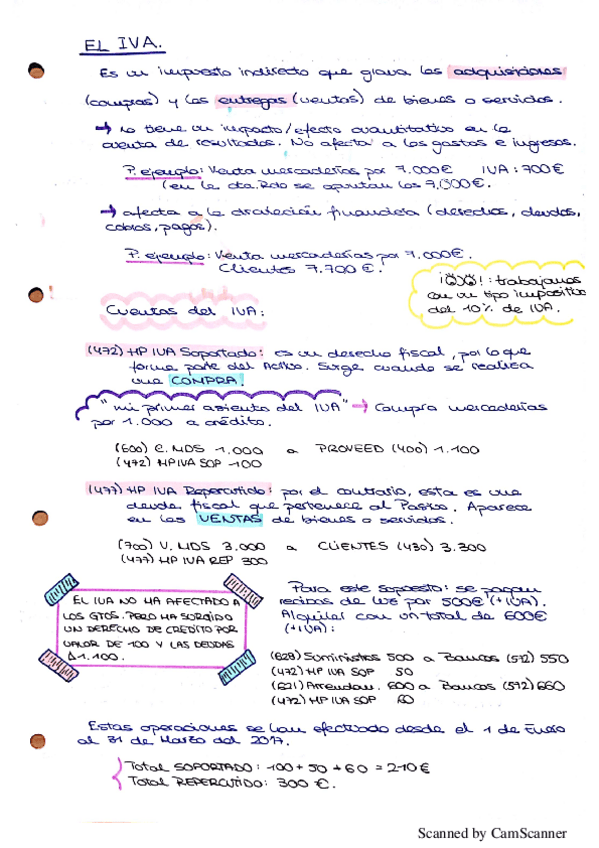 EL IVA.
Es un impuesto indirecto que grava las adquisiciones
(compras) y las entregas (ventas) de bienes o servicios.
→ no tiene un impacto/efecto cuantitativo en la
cuenta de resultados. No afecta a los gastos e ingresos.
P. ejemplo: Venta mercaderías por 7.000€ IVA: 700€
(en la cta. Rdo se apuntan los 7.000€.
→ afecta a la dirección financiera (derechos, deudas,
cobros, pagos).
P. ejemplo: Venta mercaderías por 7.000€.
Clientes 7.700€.
¡OJO!: trabajamos
con un tipo impositivo
del 10% de IVA.
Cuentas del IVA:
(472) HP IVA Soportado: es un derecho fiscal, por lo que
forma parte del Activo. Surge cuando se realiza
una COMPRA.
"mi primer asiento del IVA" → Compra mercaderías
por 1.000 a crédito.
(600) C. MDS 1.000 a PROVEED (400) 1.100
(472) HP IVA SOP 100
(477) HP IVA Repercutido: por el contrario, esta es una
deuda fiscal que pertenece al Pasivo. Aparece
en las VENTAS de bienes o servicios.
(700) V. MDS 3.000 a CLIENTES (430) 3.300
(477) HP IVA REP 300
EL IVA NO HA AFECTADO A
LOS GTOS. PERO HA SURGIDO
UN DERECHO DE CRÉDITO POR
VALOR DE 100 Y LAS DEUDAS
Δ1.100.
Para este supuesto: se pagan
recibos de luz por 500€ (+IVA).
Alquiler con un total de 600€
(+IVA):
(628) Suministros 500 a Bancos (572) 550
(472) HP IVA SOP 50
(621) Arrendam. 600 a Bancos (572) 660
(472) HP IVA SOP 60
Estas operaciones se han efectuado desde el 1 de Enero
al 31 de Marzo del 2017.
Total SOPORTADO: 100 + 50 + 60 = 210€
Total REPERCUTIDO: 300€.
Scanned by CamScanner